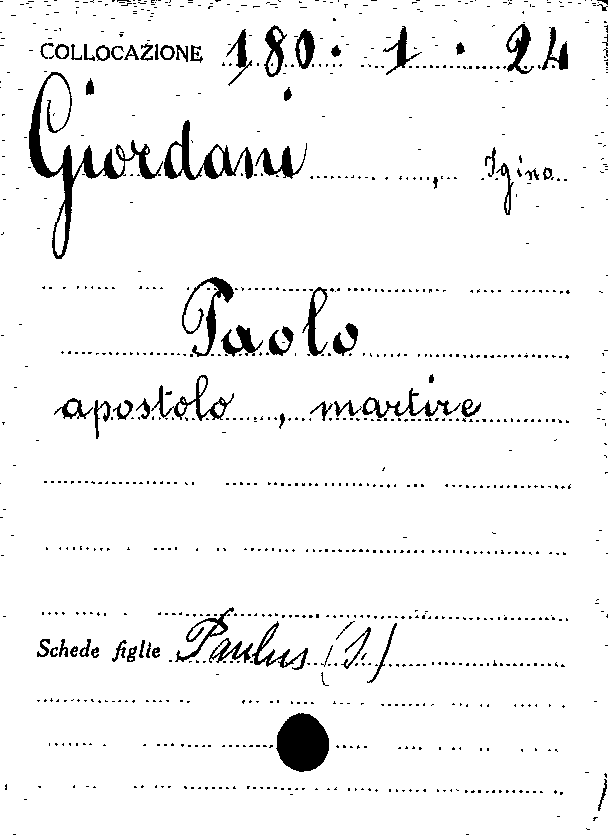 COLLOCAZIONE 180. 1. 24
Giordani, Igino
Paolo
apostolo, martire
Schede figlie Paulus (S.)